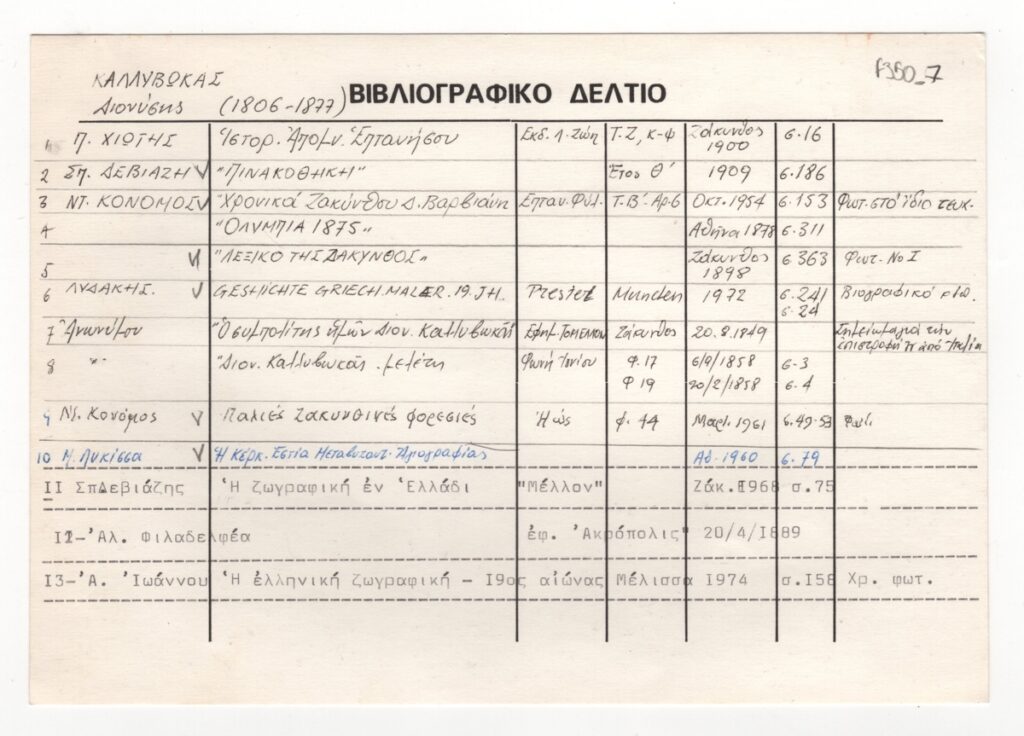 ΚΑΛΛΥΒΩΚΑΣ
Διονύσης (1806-1877) ΒΙΒΛΙΟΓΡΑΦΙΚΟ ΔΕΛΤΙΟ
1 Π. ΧΙΩΤΗΣ Ἱστορ. Ἀπομν. Ἑπτανήσου Εκδ. Λ. Ζώη Τ. Ζ, κ-φ Ζάκυνθος 1900 σ. 16
2 Σπ. ΔΕΒΙΑΖΗ V "ΠΙΝΑΚΟΘΗΚΗ" Ἔτος Θ' 1909 σ. 186
3 ΝΤ. ΚΟΝΟΜΟΣ V "Χρονικά Ζακύνθου Δ. Βαρβιάνη Επταν. Φύλ. Τ. Β'. Αρ. 6 Οκτ. 1954 σ. 153 Φωτ. στό ίδιο τευχ.
4 "ΟΛΥΜΠΙΑ 1875" Αθήνα 1878 σ. 311
5 V "ΛΕΞΙΚΟ ΤΗΣ ΖΑΚΥΝΘΟΣ" Ζάκυνθος 1898 σ 363 Φωτ. Νο Ι
6 ΛΥΔΑΚΗΣ. V GESHICHTE GRIECH. MALER. 19. JH. Prestel Munchen 1972 σ. 241 Βιογραφικό
σ. 24
7 Ἀνωνύμου "Ὁ συμπολίτης ἡμῶν Διον. Καλλυβωκᾶς Εφημ. Ζάκυνθος 20.8.1849 Σημείωμα γιά την επιστροφή τ από Ιταλία
8 " "Διον. Καλλυβωκᾶς. μελέτη Φωνή Ιονίου Φ. 17 6/9/1858 σ. 3
Φ 19 20/2/1858 σ. 4
9 Ντ. Κονόμος V Παλιές Ζακυνθινές φορεσιές Ἠώς φ. 44 Μαρτ. 1961 σ. 49-53 Φωτ.
10 Μ. Λυκίσσα V Ἡ Κερκ. Εστία Μεταβυζαντ. Ἁγιογραφίας Αθ. 1960 σ. 79
ΙΙ ΣπΔεβιάζης Ἡ ζωγραφική ἐν Ἑλλάδι "Μέλλον" Ζάκ. Ι968 σ.75
Ι2-Ἀλ. Φιλαδελφέα ἐφ. Ἀκρόπολις" 20/4/Ι889
Ι3-Ἀ. Ἰωάννου Ἡ ἑλληνική ζωγραφική - Ι9ος αἰώνας Μέλισσα Ι974 σ.Ι58 Χρ. φωτ.